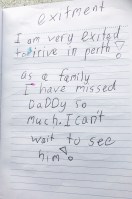 exitment
I am very exited
to drive in perth!
as a family
I have missed
DaDDy so
much. I can't
wait to see
him!